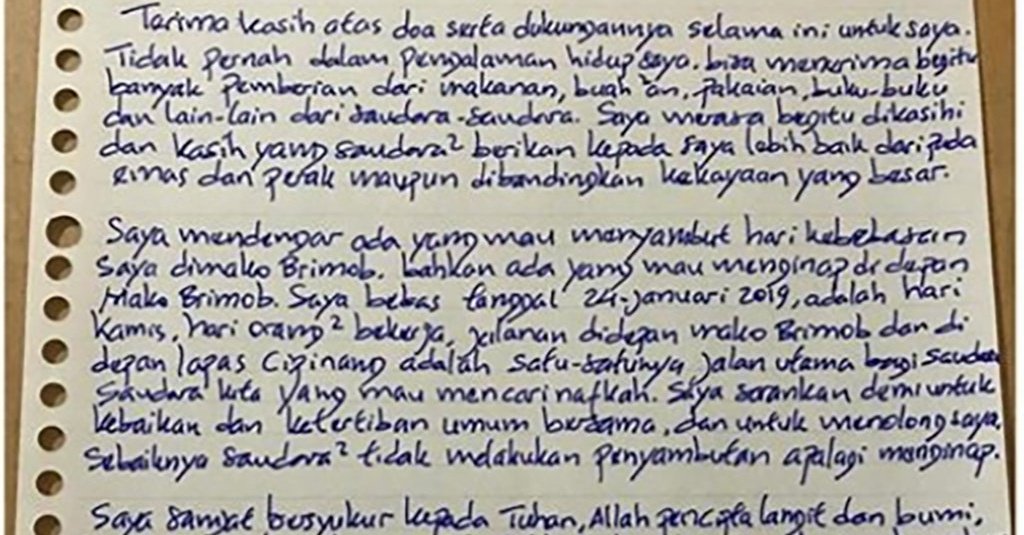 Terima kasih atas doa serta dukungannya selama ini untuk saya.
Tidak pernah dalam pengalaman hidup saya. bisa menerima begitu
banyak pemberian dari makanan, buah²an, pakaian, buku-buku
dan lain-lain dari saudara-saudara. Saya merasa begitu dikasihi
dan kasih yang saudara² berikan kepada saya lebih baik daripada
emas dan perak maupun dibandingkan kekayaan yang besar.
Saya mendengar ada yang mau menyambut hari kebebasan
saya dimako Brimob. bahkan ada yang mau menginap di depan
Mako Brimob. Saya bebas tanggal 24-januari 2019, adalah hari
kamis, hari orang² bekerja, jalanan didepan mako Brimob dan di
depan lapas Cipinang adalah satu-satunya jalan utama bagi saudara
saudara kita yang mau mencari nafkah. Saya sarankan demi untuk
kebaikan dan ketertiban umum bersama, dan untuk menolong saya,
Sebaiknya saudara² tidak melakukan penyambutan apalagi menginap.
Saya sangat bersyukur kepada Tuhan, Allah pencipta langit dan bumi,